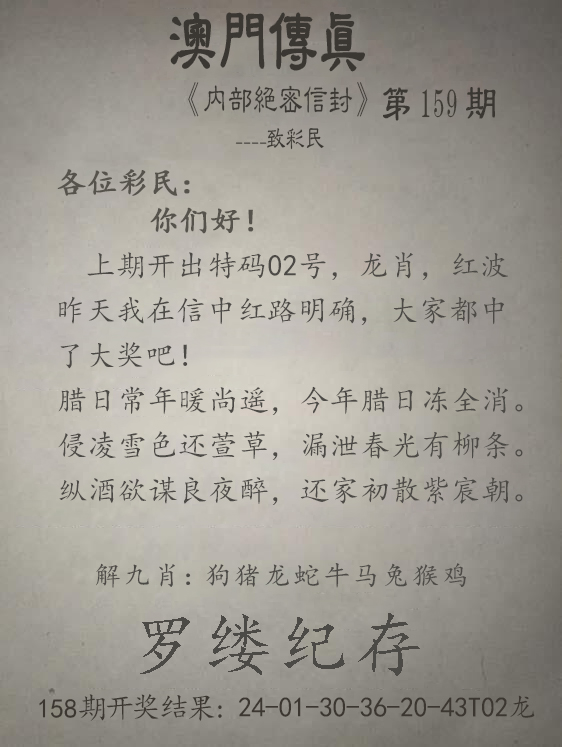 澳門傳眞
《内部絕密信封》第159期
----致彩民
各位彩民：
你们好！
上期开出特码02号，龙肖，红波
昨天我在信中红路明确，大家都中
了大奖吧！
腊日常年暖尚遥，今年腊日冻全消。
侵凌雪色还萱草，漏泄春光有柳条。
纵酒欲谋良夜醉，还家初散紫宸朝。
解九肖：狗猪龙蛇牛马兔猴鸡
罗缕纪存
158期开奖结果：24-01-30-36-20-43T02龙